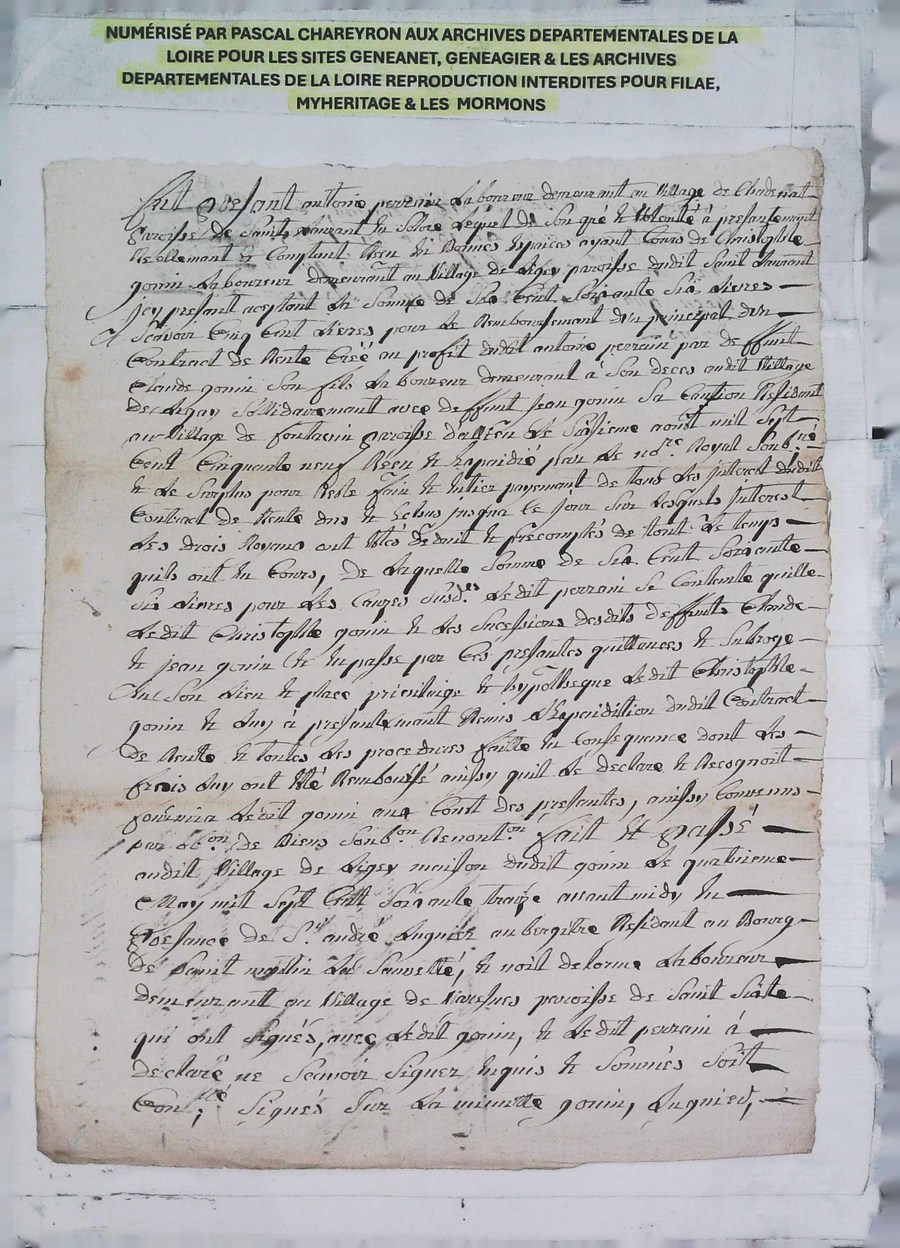 NUMÉRISÉ PAR PASCAL CHAREYRON AUX ARCHIVES DEPARTEMENTALES DE LA
LOIRE POUR LES SITES GENEANET, GENEAGIER & LES ARCHIVES
DEPARTEMENTALES DE LA LOIRE REPRODUCTION INTERDITES POUR FILAE,
MYHERITAGE & LES MORMONS
fut present antoine perrain Laboureur demeurant au Village de
paroisse de Saint Laurant En Solore Lequel de Son gré & Volonté à presantement
Reellement & Comptant Receu En Bonnes Especes ayant Cours de Christophle
gonin Laboureur demeurant au Village de Ligey paroisse dudit Saint Laurant
jcy present aceptant La Somme de Six Cent Soixante Six Livres
Scavoir Cinq Cent Livres pour Le Remboursement du principal d'un
Contract de Rente Créé au profit dudit antoine perrain par deffunt
Claude gonin Son fils Laboureur demeurant à Son deces audit Village
de Ligay Sollidairemant avec deffunt Jean gonin Sa Caution Residant
au Village de paroisse Le Sixieme aoust mil Sept
Cent Cinquante neuf Receu & Expaidié par Le no.re Royal Soub.né
& Le Surplus pour Reste fain & Entier payement de tous Les jnterest dudit
Contract de Rente dus & Echus jusqua Ce jour Sur Lesquels jnterest
Les drois Royaux ont Etés deduit & precomptés de tout Le temps
quils ont Eu Cours, de Laquelle Somme de Six Cent Soixante
Six Livres pour Les Causes Susd.es Ledit perrain Se Contente quitte
Ledit Christophle gonin & Les Sucessions desdits deffunts Claude
& jean gonin & En passe par Ces presantes quittances & Subroge
En Son Lieu & place privileige & hypotheque Ledit Christophle
gonin & Luy à presentemant Remis L'Expaidition dudit Contract
de Rente & toutes Les procedures faitte En Consequence dont Les
frais Luy ont Eté Remboursé ainssy quil Le declare & Recognoit
fournira Ledit gonin aux Cout des presantes, ainssy Convenus
par ob.on de Biens Soub.on Renont.on fait & passé
audit Village de Ligey maison dudit gonin Le quatrieme
May mil Sept Cent Soixante traize avant midy En
presance de S.r andré Lugnier aubergiste Residant au Bourg
de Saint La Sauveté, & noit delorme Laboureur
demeurant au Village de paroisse de Saint Sixte
qui ont Signés, avec Ledit gonin, & Ledit perrain à
declaré ne Scavoir Signer Enquis & Sommés Soit
Con.llé Signés Sur La minutte gonin, Lugnier,